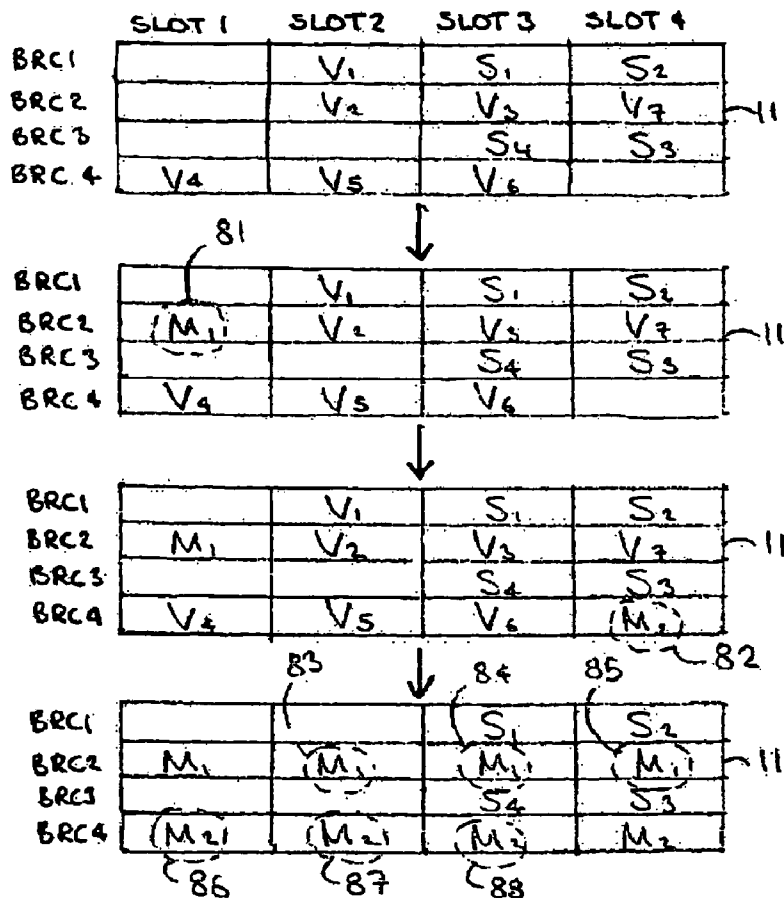 SLOT 1 SLOT 2 SLOT 3 SLOT 4
BRC1 V1 S1 S2
BRC2 V2 V3 V7 11
BRC3 S4 S3
BRC 4 V4 V5 V6
81
BRC1 V1 S1 S2
BRC2 M1 V2 V3 V7 11
BRC3 S4 S3
BRC 4 V4 V5 V6
BRC1 V1 S1 S2
BRC2 M1 V2 V3 V7 11
BRC3 S4 S3
BRC4 V4 V5 V6 M2
82
83 84 85
BRC1 S1 S2
BRC2 M1 M1 M1 M1 11
BRC3 S4 S3
BRC4 M2 M2 M2 M2
86 87 88